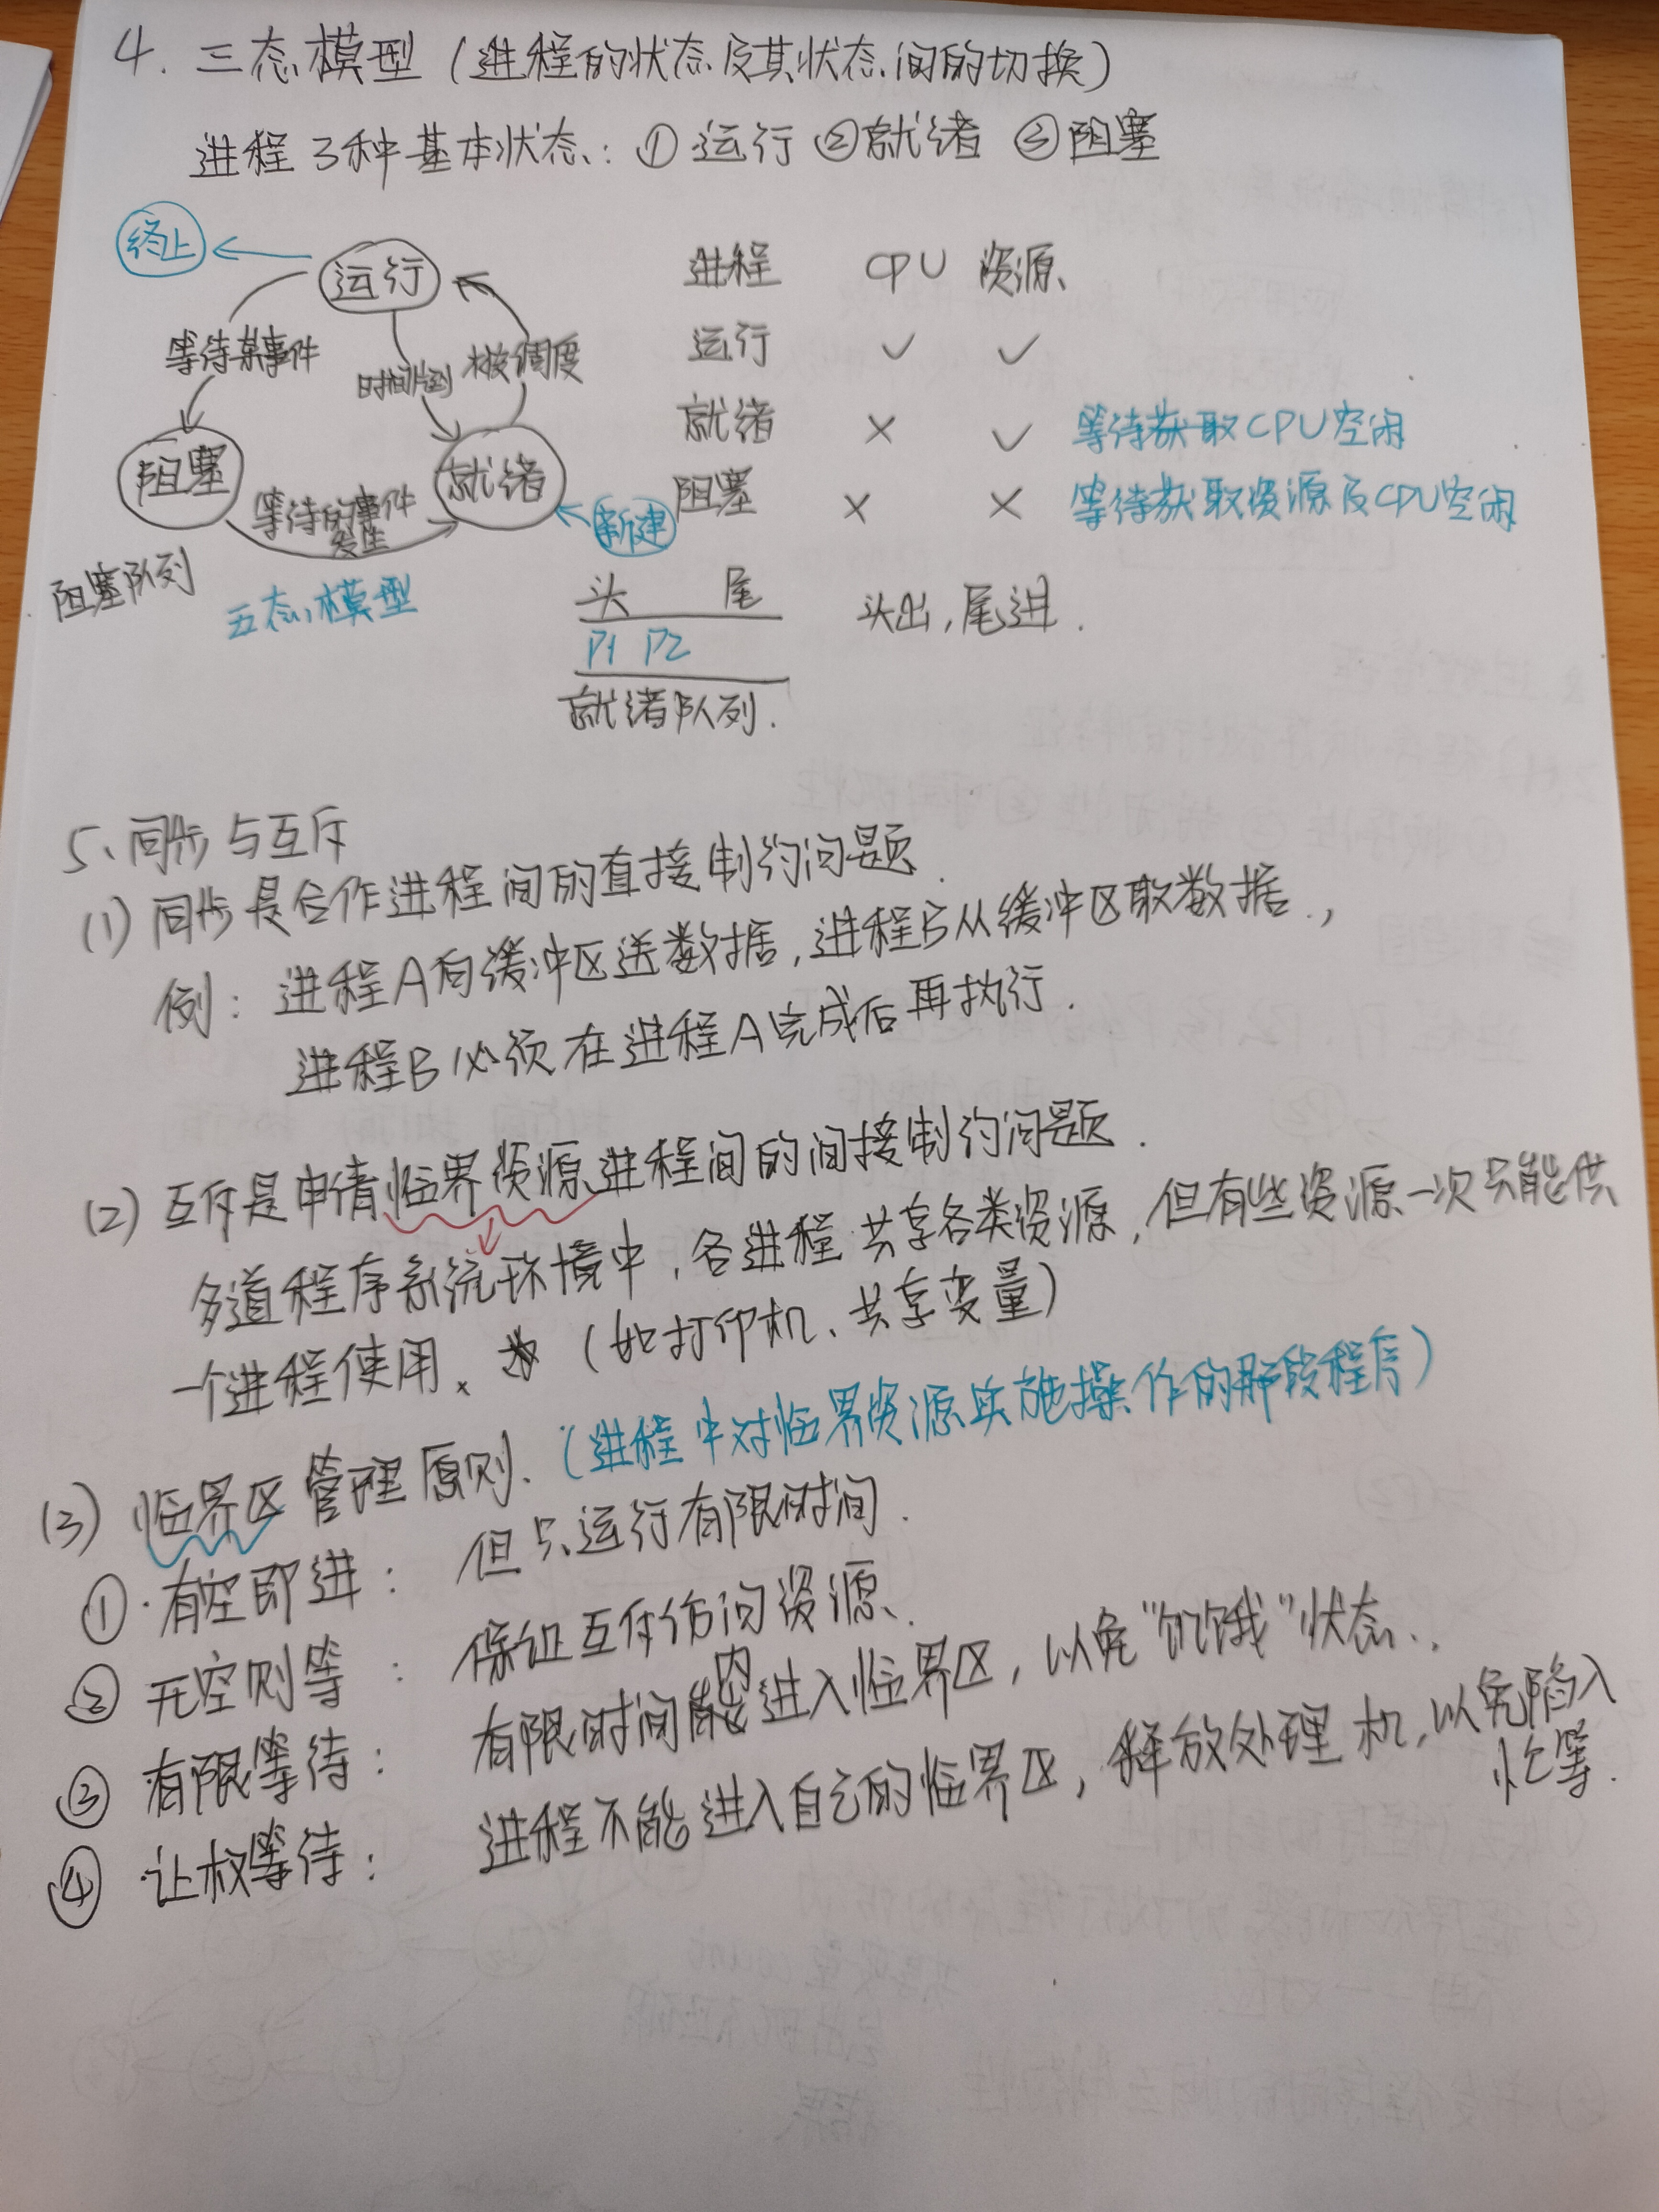 4. 三态模型（进程的状态及其状态间的切换）
进程3种基本状态：①运行 ②就绪 ③阻塞
终止
运行
等待某事件
时间片到
被调度
阻塞
就绪
等待的事件
发生
新建
阻塞队列
五态模型
进程 CPU 资源
运行 ✓ ✓
就绪 × ✓ 等待获取CPU空闲
阻塞 × × 等待获取资源及CPU空闲
头 尾
P1 P2
就绪队列.
头出,尾进.
5、同步与互斥
(1) 同步是合作进程间的直接制约问题.
例：进程A向缓冲区送数据,进程B从缓冲区取数据.,
进程B必须在进程A完成后再执行.
(2) 互斥是申请临界资源进程间的间接制约问题.
多道程序系统环境中,各进程共享各类资源,但有些资源一次只能供
一个进程使用、（如打印机、共享变量）
(3) 临界区管理原则.（进程中对临界资源实施操作的那段程序）
① 有空即进： 但只运行有限时间.
② 无空则等： 保证互斥访问资源.
③ 有限等待： 有限时间内能进入临界区,以免"饥饿"状态.,
④ 让权等待： 进程不能进入自己的临界区,释放处理机,以免陷入
忙等.